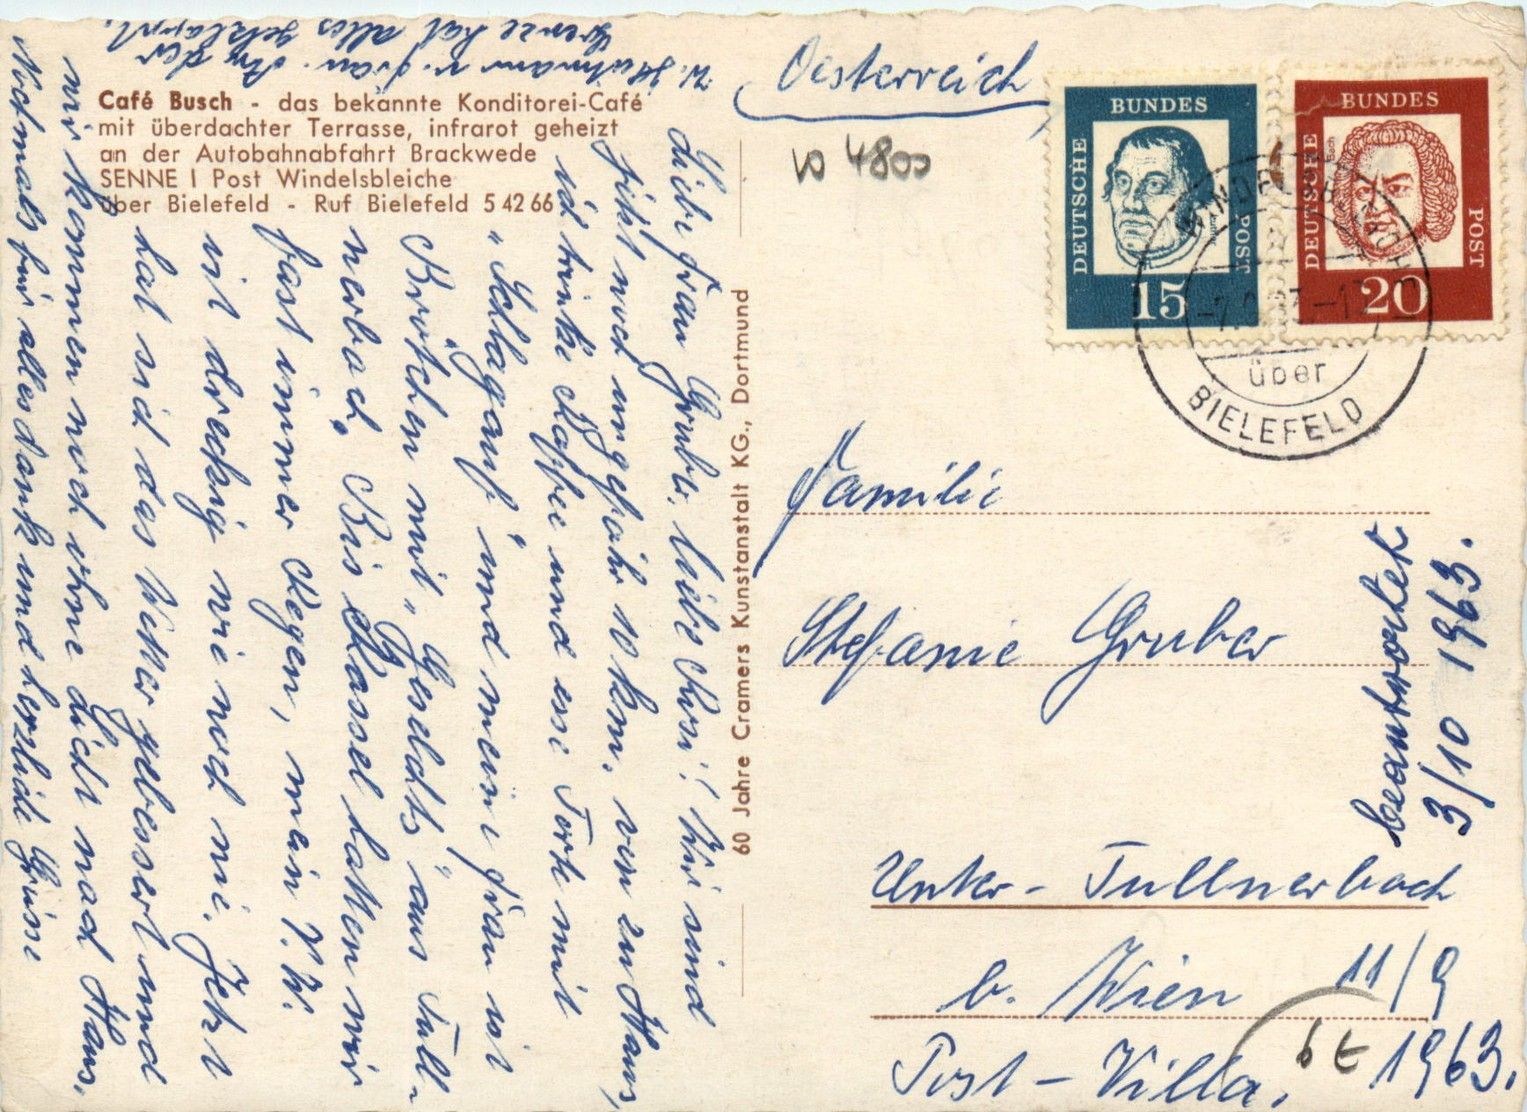 Café Busch - das bekannte Konditorei-Café
mit überdachter Terrasse, infrarot geheizt
an der Autobahnabfahrt Brackwede
SENNE I Post Windelsbleiche
über Bielefeld - Ruf Bielefeld 5 42 66
Liebe Frau Gruber, liebe Rosi! Wir sind
jetzt noch ungefähr 10 km. von zu Haus,
ich trinke Kaffee und esse Torte mit
"Schlagauf" und meine Frau ißt
Brötchen mit "Geselchts" aus Tull-
nerbach. Bis Kassel hatten wir
fast immer Regen, mein V.W.
ist dreckig wie noch nie. Jetzt
hat sich das Wetter gebessert und
wir kommen noch ohne Licht nach Haus.
Nochmals für alles dank und herzliche Grüße
W. u. Frau. An der
Grenze hat alles geklappt.
60 Jahre Cramers Kunstanstalt KG., Dortmund
Oesterreich
10 4800
DEUTSCHE BUNDES POST
15
DEUTSCHE BUNDES POST
20
WINDELSBLEICHE
über
BIELEFELD
Familie
Stefanie Gruber
Unter-Tullnerbach
b. Wien
Post-Villa.
beantwortet
3/10 1963.
11/9
1963.
6 €